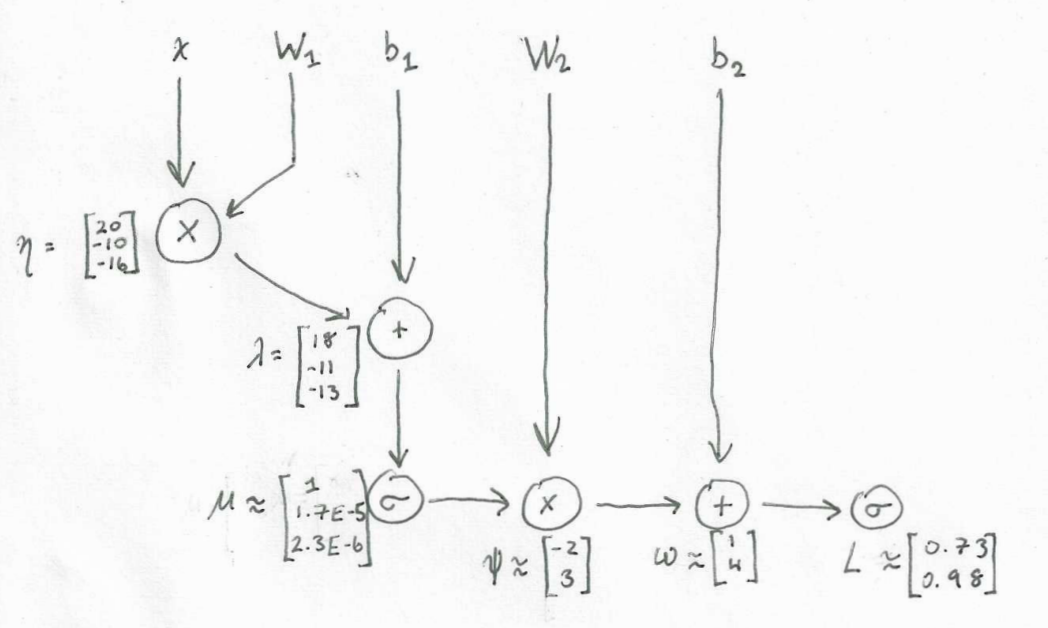 x W₁ b₁ W₂ b₂
×
η = [20 -10 -16]
+
λ = [18 -11 -13]
σ × + σ
μ ≈ [1 1.7E-5 2.3E-6]
ψ ≈ [-2 3]
ω ≈ [1 4]
L ≈ [0.73 0.98]